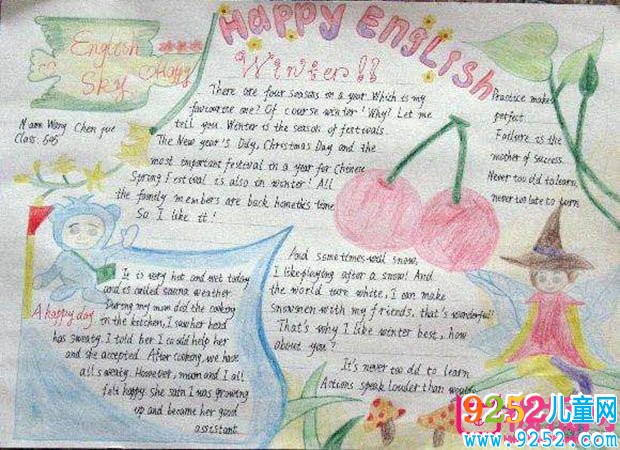 HAPPY ENGLISH
English
Sky
Happy
Winter!!
Name Wang Chen yue
Class: 505
There are four seasons in a year. Which is my
favourite one? Of course winter! Why? Let me
tell you. Winter is the season of festivals.
The New year's Day, Christmas Day and the
most important festival in a year for Chinese
Spring Festival is also in winter! All
the family members are back home this time
So I like it!
Practice makes
perfect.
Failure is the
mother of success.
Never too old to learn,
never too late to turn
And sometimes will snow,
I like playing after a snow! And
the world ture white, I can make
snowmen with my friends, that's wonderful!
That's why I like winter best, how
about you?
It's never too old to learn
Actions speak louder than words
A happy day
It is very hot and wet today
and is called sauna weather
During my mum did the cooking
in the kitchen, I saw her head
has sweaty. I told her I could help her
and she accepted. After cooking, we have
all sweaty. However, mum and I all
felt happy. She sain I was growing
up and became her good
assistant.
9252儿童网
www.9252.com